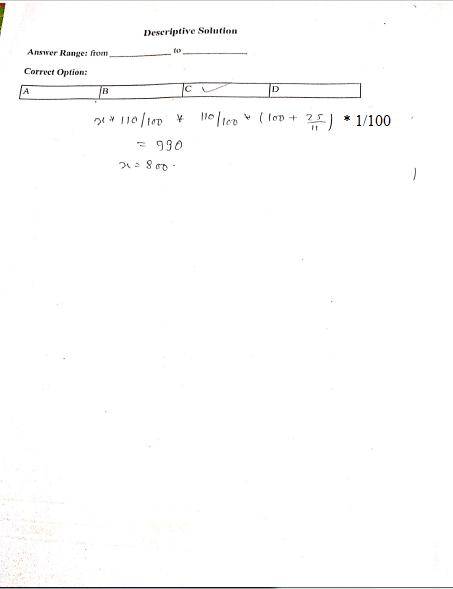 Descriptive Solution
Answer Range: from ____________ to ____________
Correct Option:
A B C ✓ D
x * 110/100 * 110/100 * (100 + 25/11) * 1/100
= 990
x = 800.